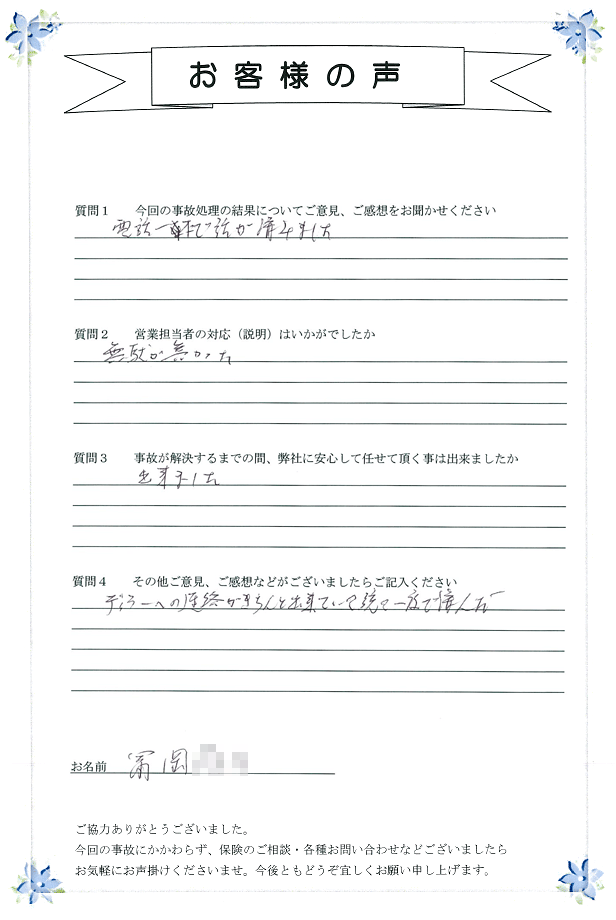 お客様の声
質問1 今回の事故処理の結果についてご意見、ご感想をお聞かせください
電話一軒で話が済みました
質問2 営業担当者の対応（説明）はいかがでしたか
無駄が無かった
質問3 事故が解決するまでの間、弊社に安心して任せて頂く事は出来ましたか
出来ました
質問4 その他ご意見、ご感想などがございましたらご記入ください
デーラーへの連絡がきちんと出来ていて 一度で済んだ
お名前 富岡
ご協力ありがとうございました。
今回の事故にかかわらず、保険のご相談・各種お問い合わせなどございましたら
お気軽にお声掛けくださいませ。今後ともどうぞ宜しくお願い申し上げます。